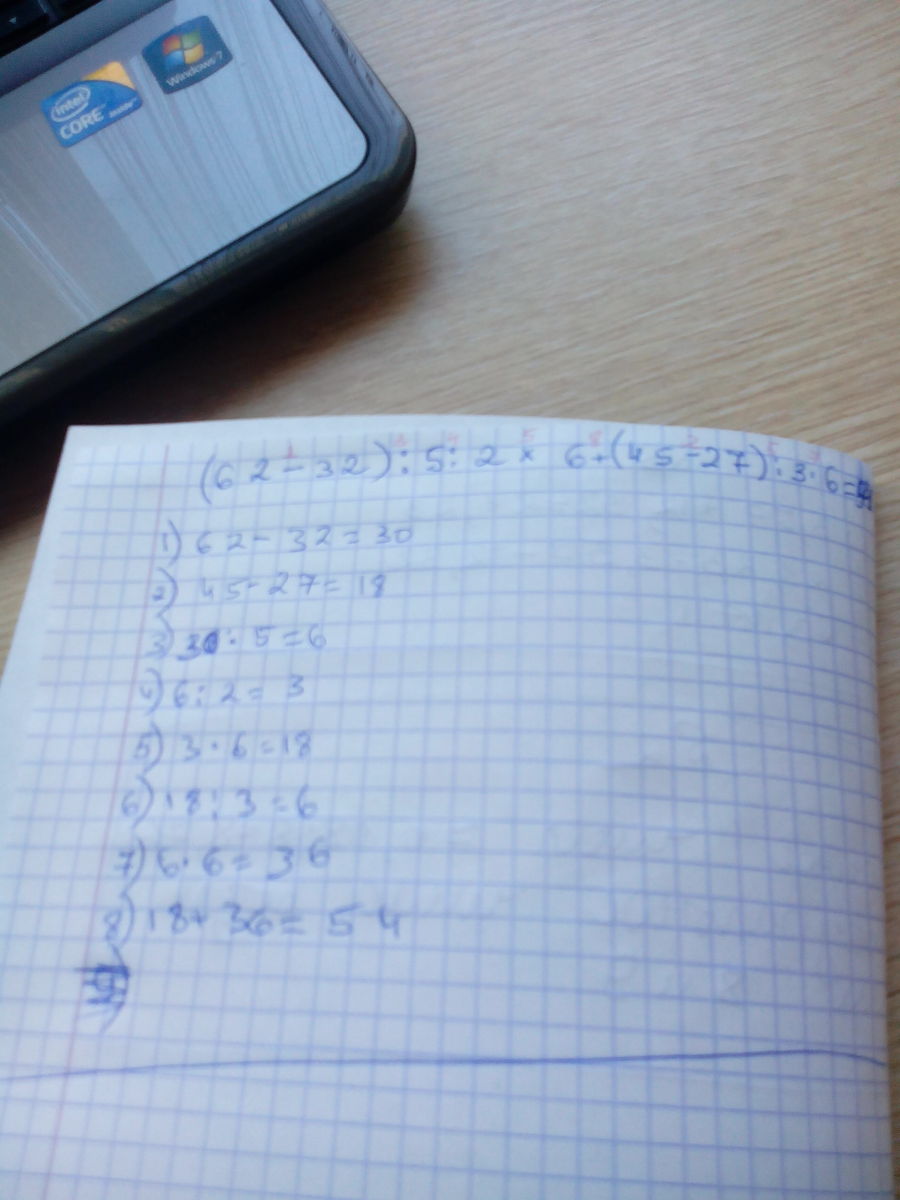 intel
CORE
inside™
Windows 7
(62-32):5:2× 6+(45-27):3·6=
1) 62-32=30
2) 45-27=18
3) 30:5=6
4) 6:2=3
5) 3·6=18
6) 18:3=6
7) 6·6=36
8) 18+36=54